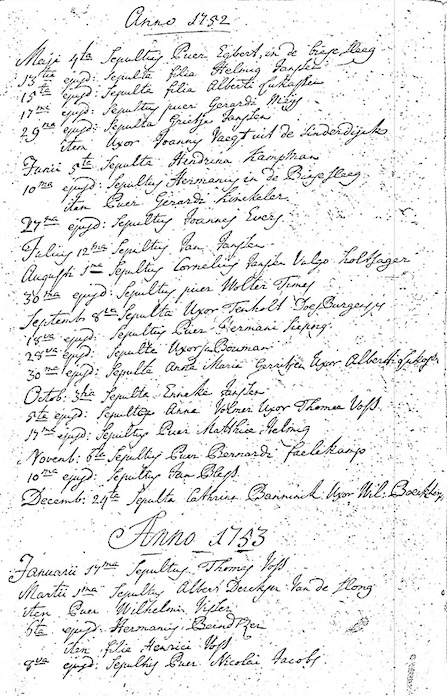 Anno 1752
Maji 4ta Sepultus Puer Egbert in de biese steeg
13tia ejusd: Sepulta filia Helmig Janssen
15ta ejusd: Sepulta filia Alberti Lukassen
17ma ejusd: Sepultus puer Gerardi
29na ejusd: Sepulta Grietje Janssen
item Uxor Joannis Vaegt uit de Linderdijck
Junii 5ta Sepulta Hendrina Kampman
10ma ejusd: Sepultus Hermanus in de Biese steeg
item Puer Gerardi
27ma ejusd: Sepultus Joannes Evers
Julius 12ma Sepultus Jan Janssen
Augusti 1ma Sepultus Cornelius Jansen Vulgo holtsager
30ma ejusd: Sepultus puer Wolter
Septemb: 8va Sepulta Uxor Tenholt Does Burgensis
18va ejusd: Sepultus Puer Hermani
28va ejusd: Sepulta Uxor Bouman
30ma ejusd: Sepulta Anna Maria Gerritsen Uxor Alberti
Octob: 3tia Sepulta Enneke Janssen
5ta ejusd: Sepulta Anna Volmer Uxor Thomae Voss
17ma ejusd: Sepultus Puer Matthiae Helmig
Novemb: 6ta Sepultus Puer Bernardi
10ma ejusd: Sepultus Jan
Decemb: 24ta Sepulta Cathrina Banninck Uxor Wil:
Anno 1753
Januarii 17ma Sepultus Thomas Voss
Martii 1ma Sepultus Albert Dercksen Van de Hong
item Puer Wilhelmi Visser
6ta ejusd: Hermanus
item filia Henrici Voss
8va ejusd: Sepultus Puer Nicolai Jacobs